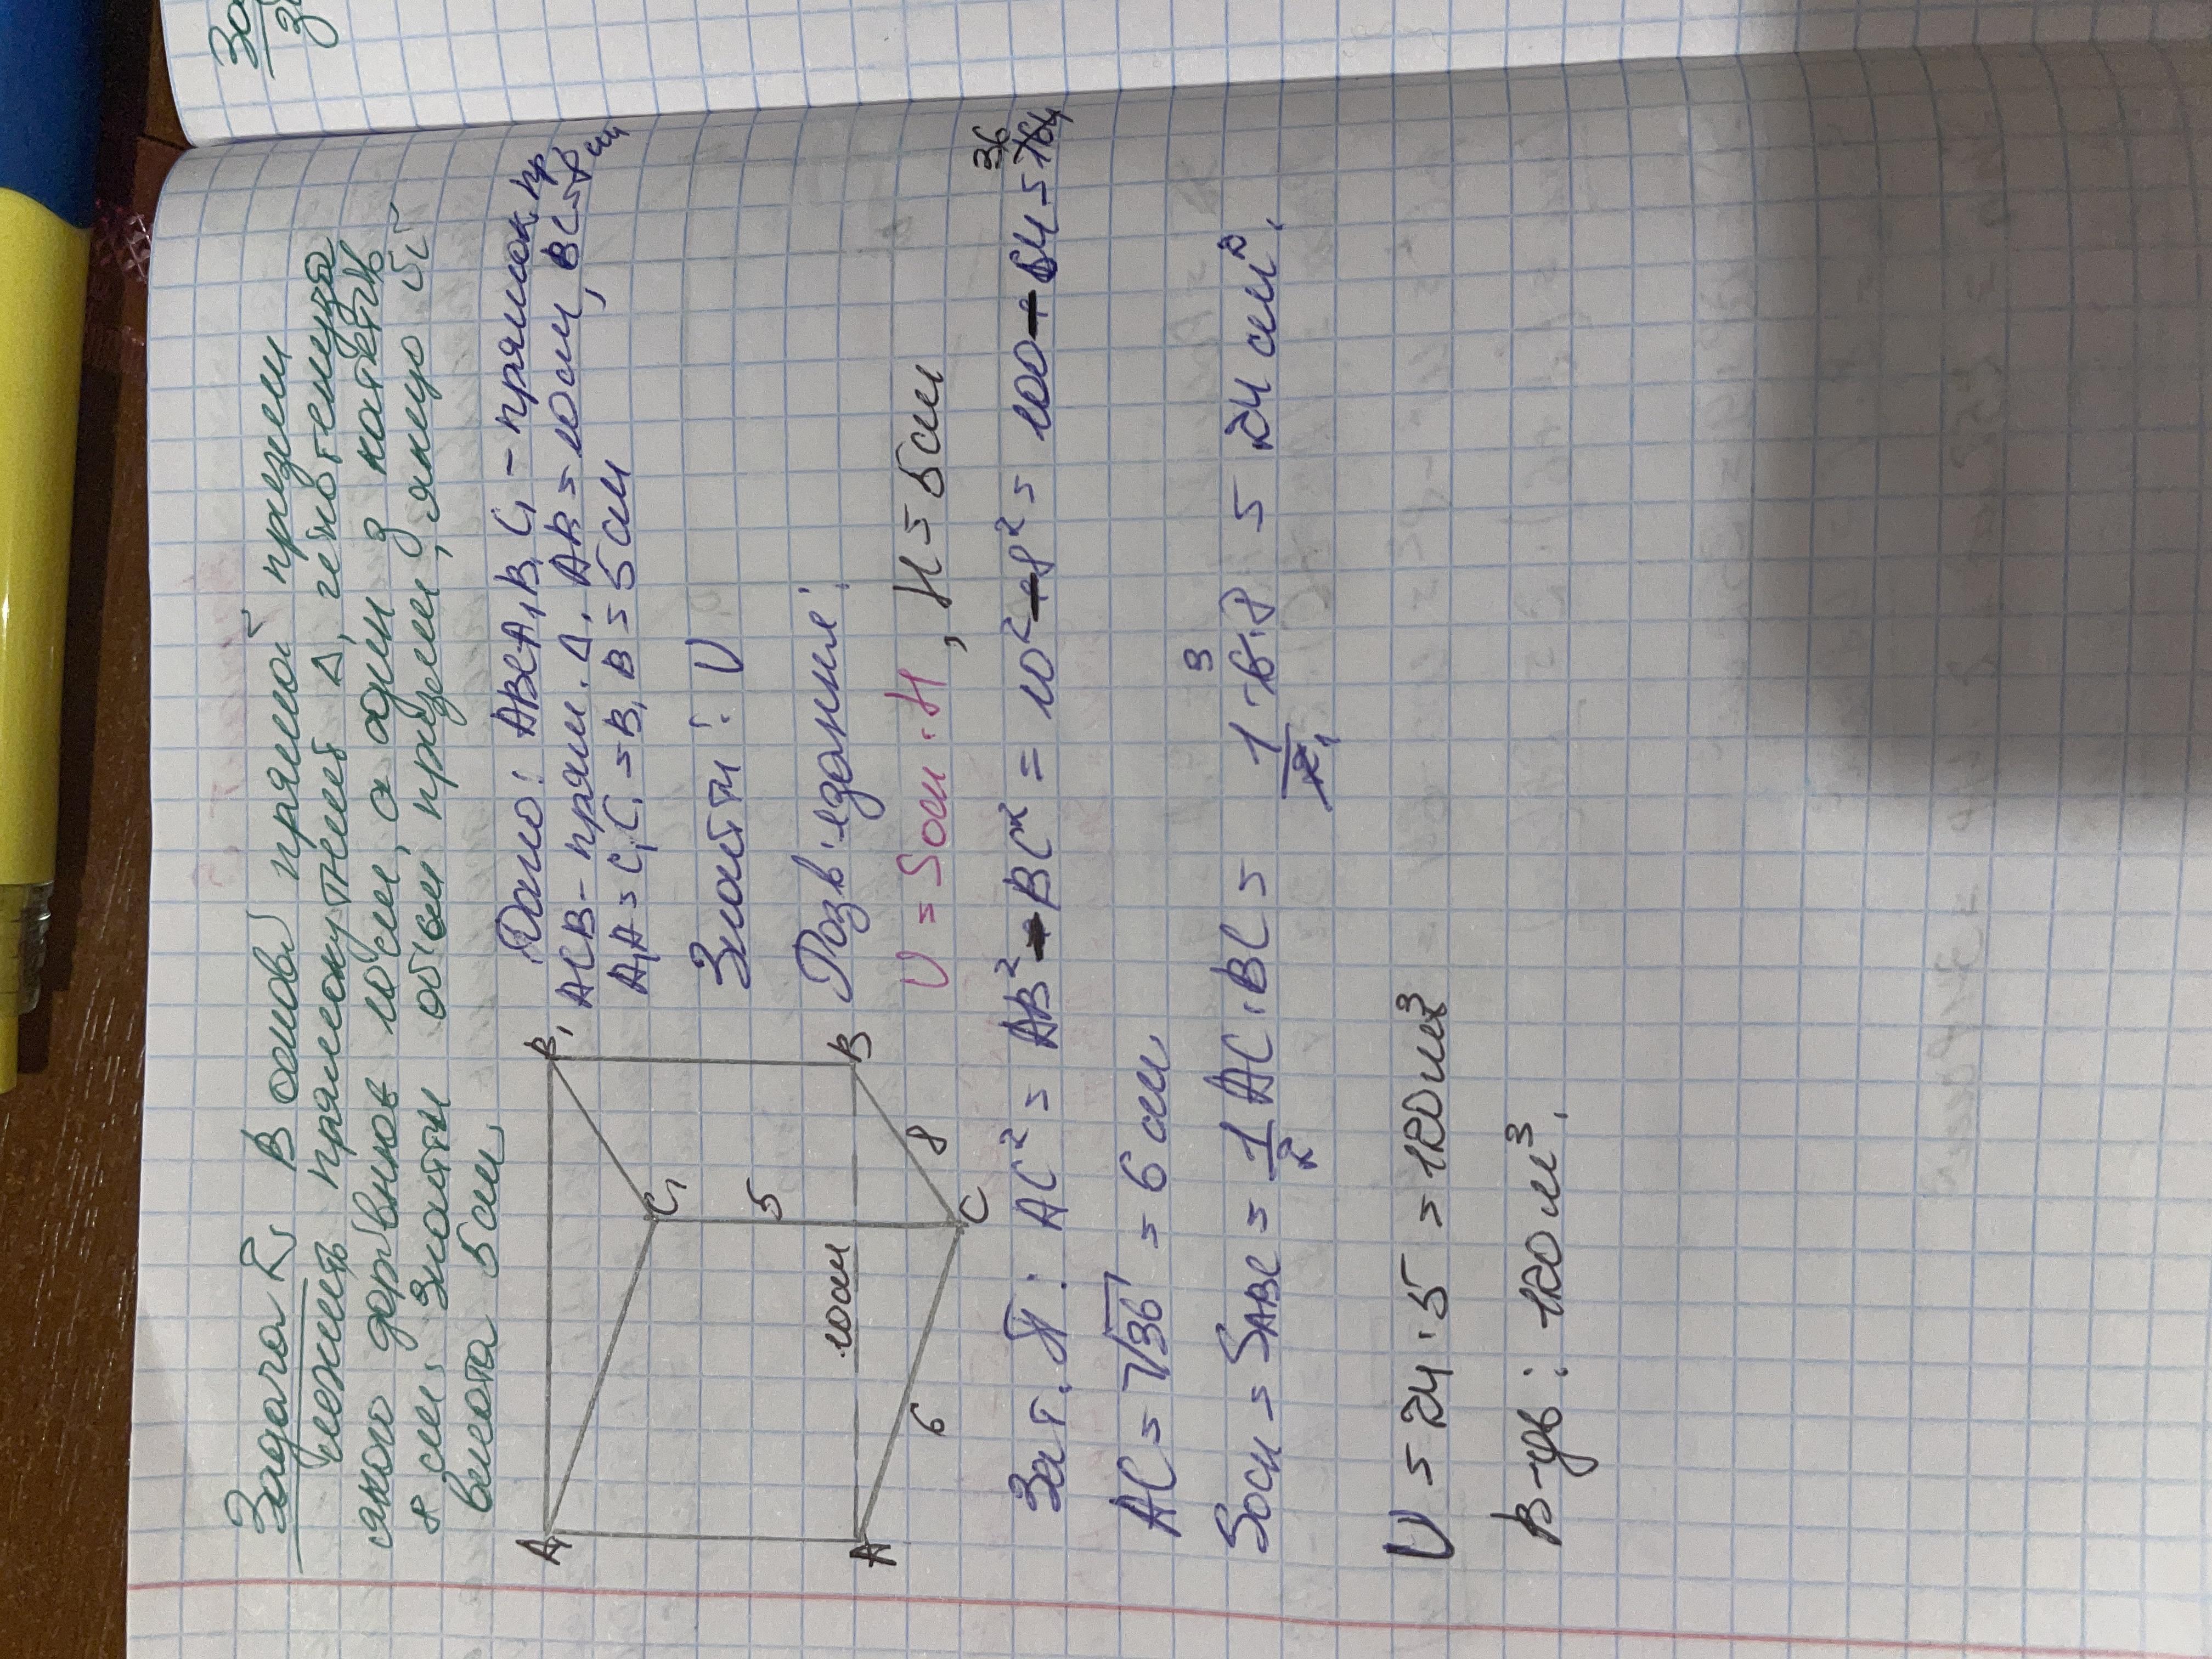 Задача 2. В основі прямої призми
лежить прямокутний Δ, гіпотенуза
якого дорівнює 10 см, а один з катетів
8 см. Знайти об'єм призми, якщо її
висота 5 см.
Дано: ABCA₁B₁C₁ - прямок. пр
ACB - прям. Δ, AB = 10 см, BC = 8 см
A₁A = C₁C = B₁B = 5 см
Знайти: V
Розв'язання:
V = Sосн · H, H = 5 см
A₁
B₁
C₁
5
10 см
A
B
C
6
8
За т. П: AC² = AB² - BC² = 10² - 8² = 100 - 64 = 36 164
AC = √36 = 6 см
Sосн = SABC = 1/2 AC · BC = 1/2 1 · 6 3 · 8 = 24 см².
V = 24 · 5 = 120 см³
В-дь: 120 см³.
За